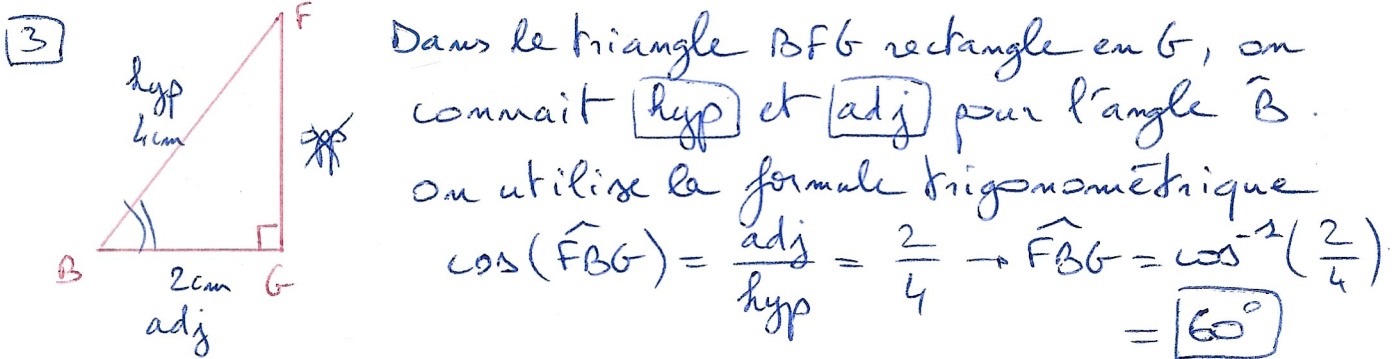 3
F
hyp
4cm
opp
B
2cm
G
adj
Dans le triangle BFG rectangle en G, on
connait hyp et adj pour l'angle B̂.
on utilise la formule trigonométrique
cos(F̂BG) = adj/hyp = 2/4 → F̂BG = cos⁻¹(2/4)
= 60°